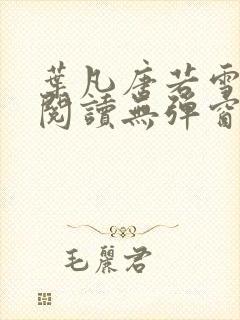 葉凡唐若雪
閱讀無彈窗
毛麗君